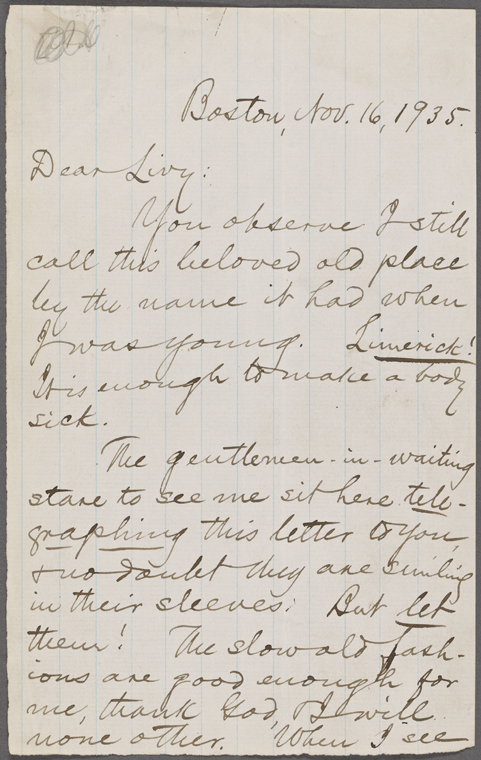 Boston, Nov. 16, 1935.
Dear Livy:
You observe I still
call this beloved old place
by the name it had when
I was young. Limerick!
It is enough to make a body
sick.
The gentlemen-in-waiting
stare to see me sit here tele-
graphing this letter to you,
& no doubt they are smiling
in their sleeves. But let
them! The slow old fash-
ions are good enough for
me, thank God, & I will
none other. When I see